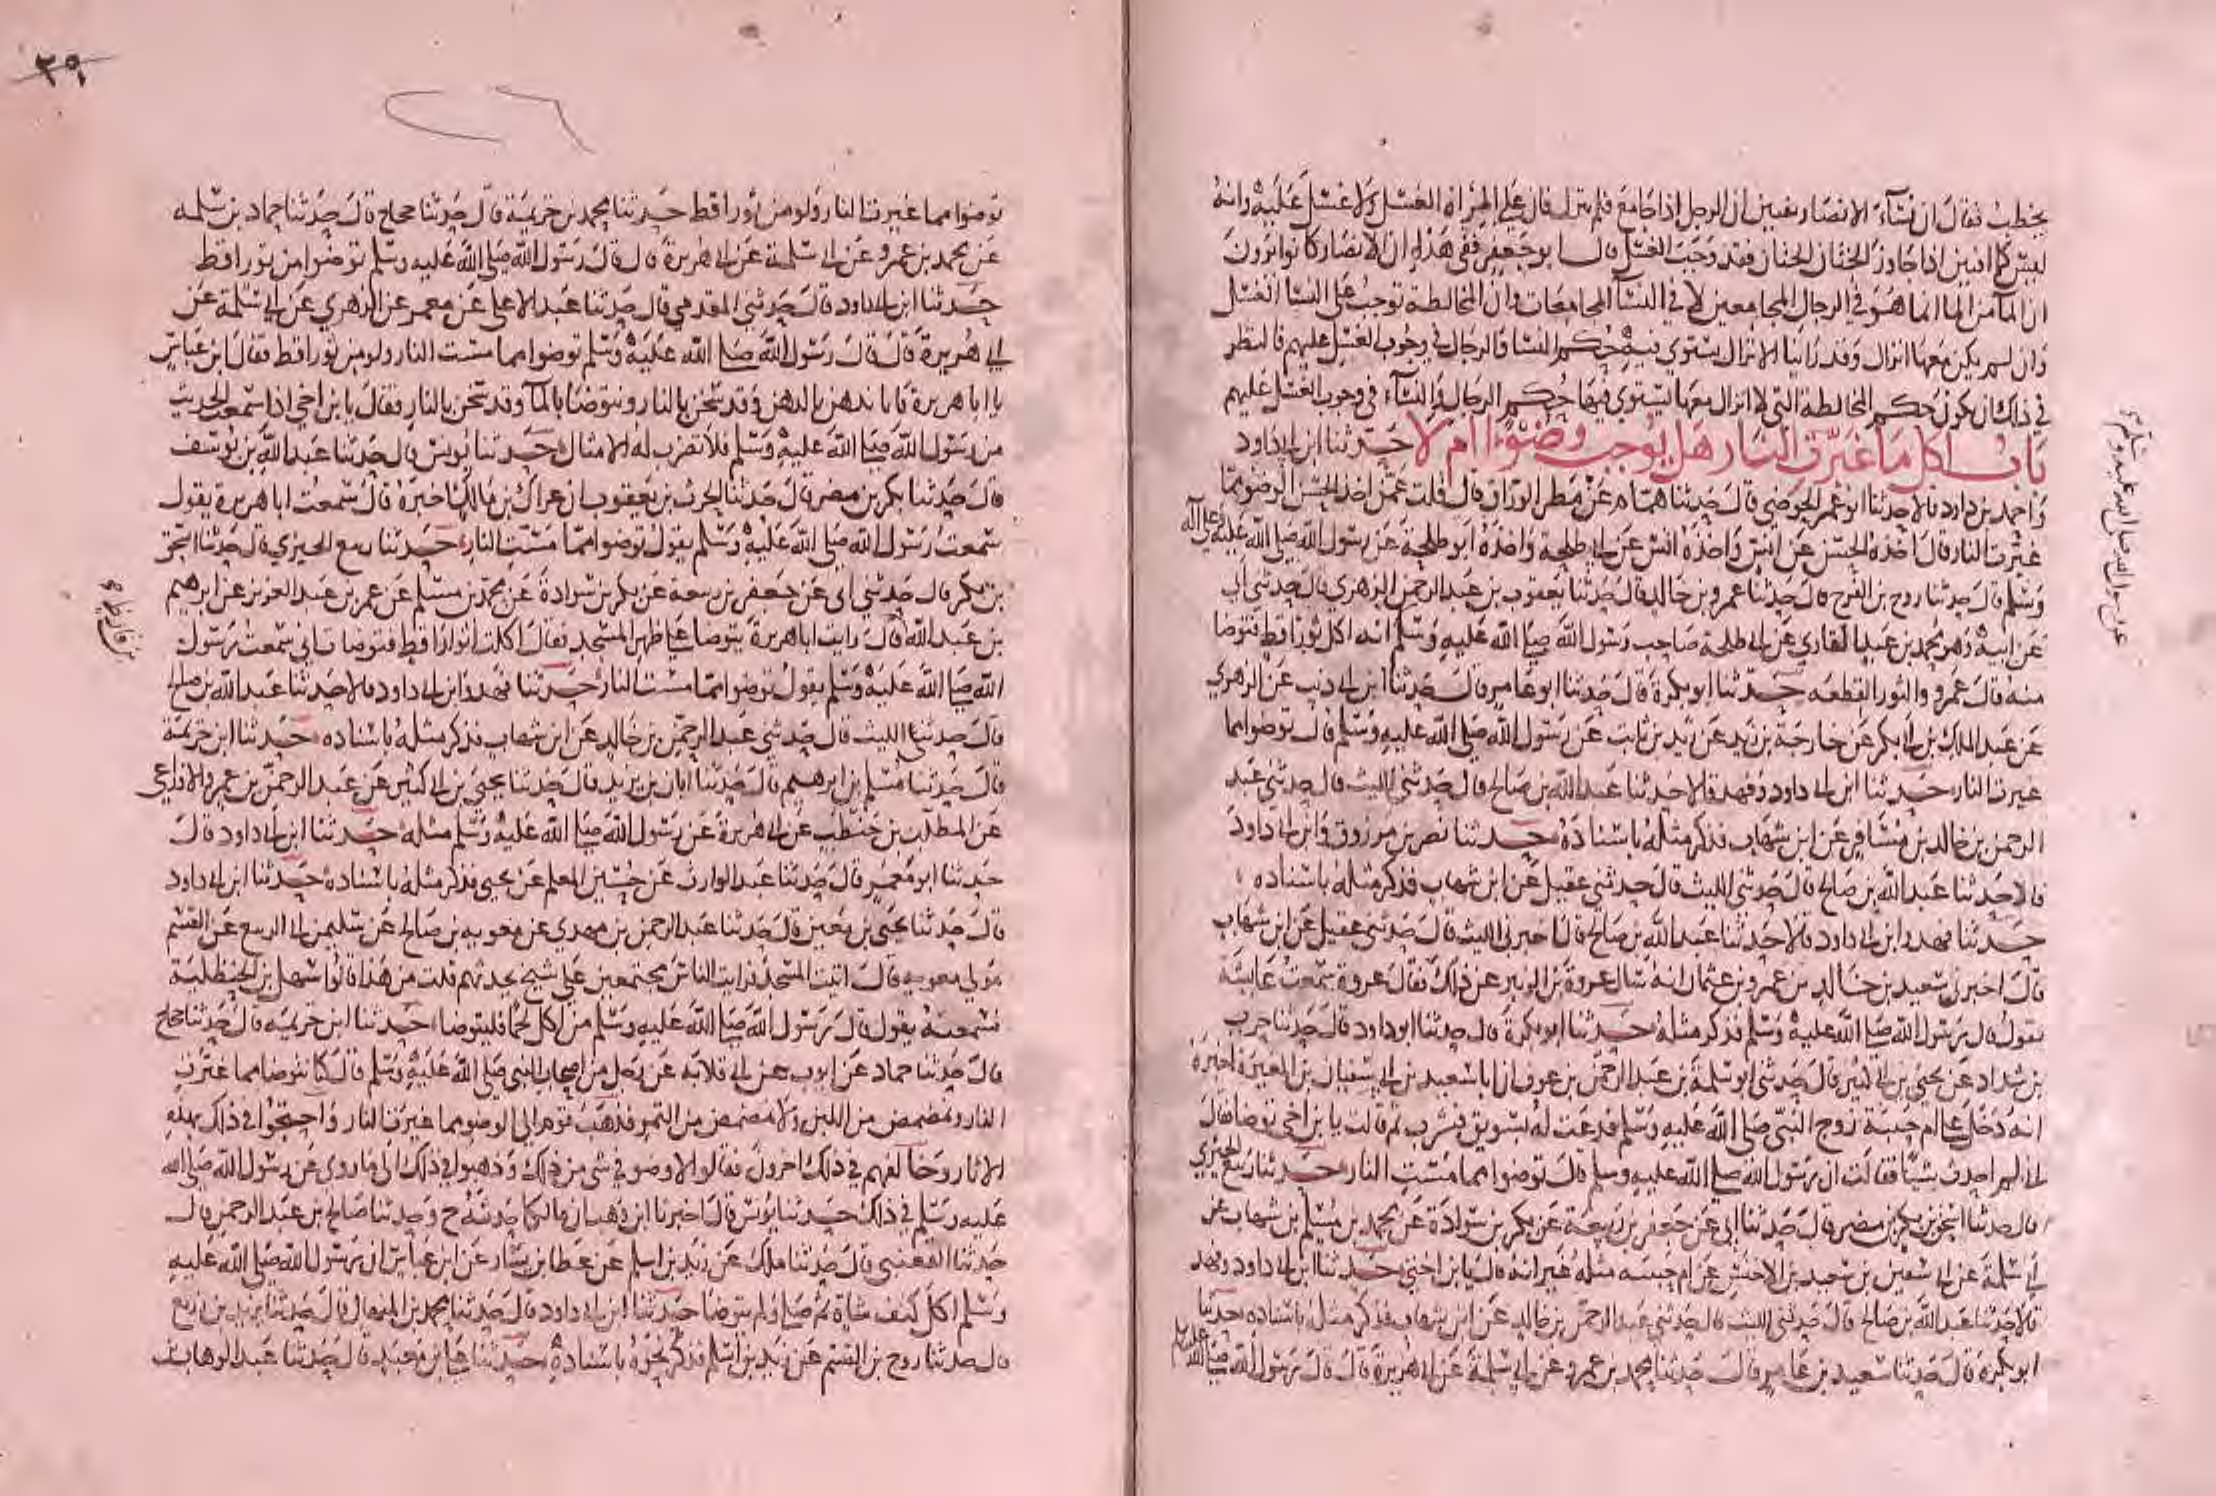 يخطب فقال ان نساء الانصار يفتين ان الرجل اذا جامع فلم ينزل فان على المراة الغسل ولا غسل عليه وانه
ليس كما افتين اذا جاوز الختان الختان فقد وجب الغسل قال ابو جعفر ففي هذا ان الانصار كانوا يرون
ان الما من الما انما هو في الرجال المجامعين لا في النسآ المجامعات وان المخالطة توجب على النسآ الغسل
وان لم يكن معها انزال وقد راينا الانزال يستوي فيه حكم النسا والرجال في وجوب الغسل عليهم فالنظر
في ذلك ان يكون حكم المخالطة التي لا انزال معها يستوي فيها حكم الرجال والنسآء في وجوب الغسل عليهم
باب اكل ما غيرت النار هل يوجب وضوءا ام لا حدثنا ابن ابي داود
واحمد بن داود قالا حدثنا ابو عمر الحوضي قال حدثنا همام عن مطر الوراق قال قلت عمن اخذ الحسن الوضو مما
غيرت النار قال اخذه الحسن عن انس واخذه انس عن ابي طلحة واخذه ابو طلحة عن رسول الله صلى الله عليه وعلى آله
وسلم قال حدثنا روح بن الفرج قال حدثنا عمرو بن خالد قال حدثنا يعقوب بن عبد الرحمن الزهري قال حدثني ابي
عن ابيه وهو محمد بن عبد القاري عن ابي طلحة صاحب رسول الله صلى الله عليه وسلم انه اكل ثور اقط فتوضا
منه قال عمرو والثور القطعه حدثنا ابو بكرة قال حدثنا ابو عامر قال حدثنا ابن ابي ذيب عن الزهري
عن عبد الملك بن ابي بكر عن خارجة بن زيد عن زيد بن ثابت عن رسول الله صلى الله عليه وسلم قال توضوا مما
غيرت النار حدثنا ابن ابي داود وفهد قالا حدثنا عبد الله بن صالح قال حدثني الليث قال حدثني عبد
الرحمن بن خالد بن مسافر عن ابن شهاب فذكر مثله باسناده حدثنا نصر بن مرزوق وابن ابي داود
قالا حدثنا عبد الله بن صالح قال حدثني الليث قال حدثني عقيل عن ابن شهاب فذكر مثله باسناده
حدثنا فهد وابن ابي داود قالا حدثنا عبد الله بن صالح قال اخبرني الليث قال حدثني عقيل عن ابن شهاب
قال اخبرني سعيد بن خالد بن عمرو بن عثمان انه سال عروة بن الزبير عن ذلك فقال عروة سمعت عايشة
تقول قال رسول الله صلى الله عليه وسلم فذكر مثله حدثنا ابو بكرة قال حدثنا ابو داود قال حدثنا حرب
بن شداد عن يحيى بن ابي كثير قال حدثني ابو سلمة بن عبد الرحمن بن عوف ان ابا سعيد بن ابي سفيان بن المغيرة اخبره
انه دخل على ام حبيبة زوج النبي صلى الله عليه وسلم فدعت له بسويق فشرب ثم قالت يا بن اخي توضا فقال
اني لم احدث شيا فقالت ان رسول الله صلى الله عليه وسلم قال توضوا مما مست النار حدثنا ربيع الجيزي
قال حدثنا اسحق بن بكر بن مضر قال حدثنا ابي عن جعفر بن ربيعة عن بكر بن سوادة عن محمد بن مسلم بن شهاب عن
ابي سلمة عن ابي سفين بن سعيد بن الاخنس عن ام حبيبه مثله غير انه قال يا بن اختي حدثنا ابن ابي داود وفهد
قالا حدثنا عبد الله بن صالح قال حدثني الليث قال حدثني عبد الرحمن بن خالد عن ابن شهاب فذكر مثله باسناده حدثنا
ابو بكرة قال حدثنا سعيد بن عامر قال حدثنا محمد بن عمرو عن ابي سلمة عن ابي هريرة قال قال رسول الله صلى الله عليه وسلم
عن رسول الله صلى الله عليه وسلم
٢٥١
٢٦
توضوا مما غيرت النار ولو من ثور اقط حدثنا محمد بن خزيمة قال حدثنا حجاج قال حدثنا حماد بن سلمه
عن محمد بن عمرو عن ابي سلمة عن ابي هريرة قال قال رسول الله صلى الله عليه وسلم توضوا من ثور اقط
حدثنا ابن ابي داود قال حدثني المقدمي قال حدثنا عبد الاعلى عن معمر عن الزهري عن ابي سلمة عن
ابي هريرة قال قال رسول الله صلى الله عليه وسلم توضوا مما مست النار ولو من ثور اقط فقال ابن عباس
يا ابا هريرة فانا ندهن بالدهن وقد سخن بالنار ونتوضا بالمآ وقد سخن بالنار فقال يا بن اخي اذا سمعت الحديث
من رسول الله صلى الله عليه وسلم فلا تضرب له الامثال حدثنا يونس قال حدثنا عبد الله بن يوسف
قال حدثنا بكر بن مضر قال حدثنا الحرث بن يعقوب ان عراك بن مالك اخبره قال سمعت ابا هريرة يقول
سمعت رسول الله صلى الله عليه وسلم يقول توضوا مما مست النار حدثنا ربيع الجيزي قال حدثنا اسحق
بن بكر قال حدثني ابي عن جعفر بن ربيعه عن بكر بن سوادة عن محمد بن مسلم عن عمر بن عبد العزيز عن ابرهيم
بن عبد الله قال رايت ابا هريرة يتوضا على ظهر المسجد فقال اكلت اثوار اقط فتوضات اني سمعت رسول
الله صلى الله عليه وسلم يقول توضوا مما مست النار حدثنا فهد وابن ابي داود قالا حدثنا عبد الله بن صالح
قال حدثني الليث قال حدثني عبد الرحمن بن خالد عن ابن شهاب فذكر مثله باسناده حدثنا ابن خزيمة
قال حدثنا مسلم بن ابرهيم قال حدثنا ابان بن يزيد قال حدثنا يحيى بن ابي كثير عن عبد الرحمن بن عمرو الاوزاعي
عن المطلب بن حنطب عن ابي هريرة عن رسول الله صلى الله عليه وسلم مثله حدثنا ابن ابي داود قال
حدثنا ابو معمر قال حدثنا عبد الوارث عن حسين المعلم عن يحيى فذكر مثله باسناده حدثنا ابن ابي داود
قال حدثنا يحيى بن معين قال حدثنا عبد الرحمن بن مهدي عن معويه بن صالح عن سليمن ابي الربيع عن القسم
مولى معويه قال اتيت المسجد فرايت الناس مجتمعين على شيخ يحدثهم قلت من هذا قالوا سهل بن الحنظلية
فسمعته يقول قال رسول الله صلى الله عليه وسلم من اكل لحما فليتوضا حدثنا ابن خزيمه قال حدثنا حجاج
قال حدثنا حماد عن ايوب عن ابي قلابه عن رجل من اصحاب النبي صلى الله عليه وسلم قال كنا نتوضا مما غيرت
النار ونمضمض من اللبن ولا نمضمض من التمر فذهب قوم الى الوضو مما غيرت النار واحتجوا في ذلك بهذه
الاثار وخالفهم في ذلك اخرون فقالوا لا وضو في شى من ذلك وذهبوا في ذلك الى ما روي عن رسول الله صلى الله
عليه وسلم في ذلك حدثنا يونس قال اخبرنا ابن وهب ان مالكا حدثه ح وحدثنا صالح بن عبد الرحمن قال
حدثنا القعنبي قال حدثنا ملك عن زيد بن اسلم عن عطا بن يسار عن ابن عباس ان رسول الله صلى الله عليه
وسلم اكل كتف شاة ثم صلى ولم يتوضا حدثنا ابن ابي داود قال حدثنا محمد بن المنهال قال حدثنا يزيد بن زريع
قال حدثنا روح بن القسم عن زيد بن اسلم فذكر نحوه باسناده حدثنا علي بن معبد قال حدثنا عبد الوهاب
بن قارظ